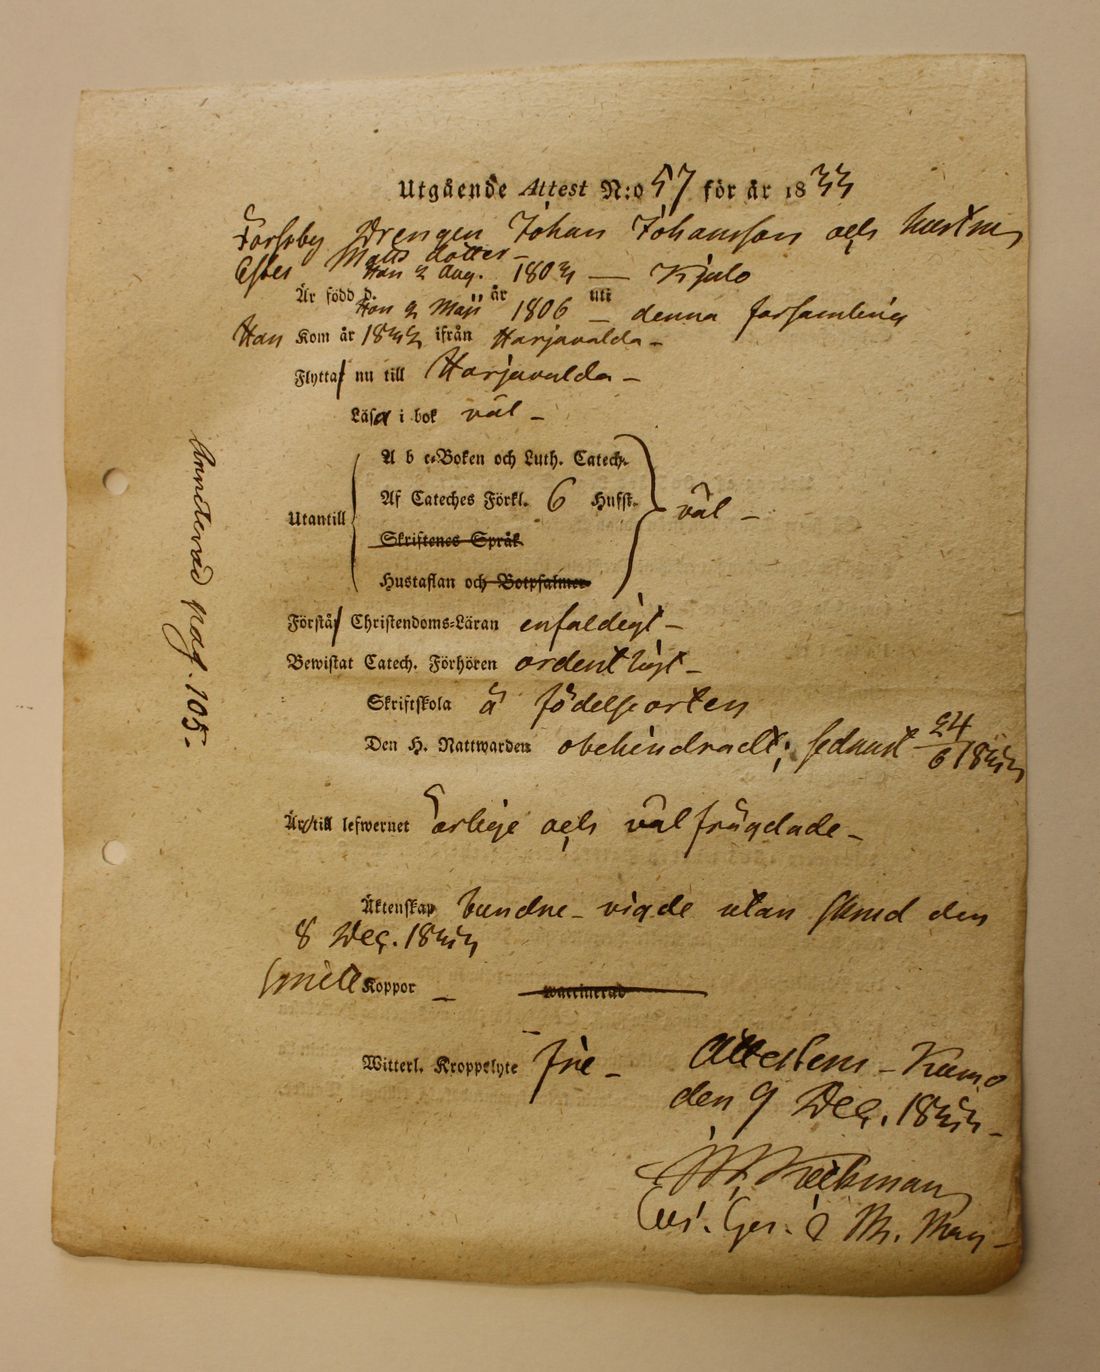 Utgående Attest N:o 57 för år 1833
Forsby Drengen Johan Johansson och hustru
Ester Mats dotter –
Han 2 Aug. 1803 — Kjulo
Är född d. år uti
Hon 2 Maji 1806 – denna församling
Han Kom år 1832 ifrån Harjavalda –
Flytta nu till Harjavalda –
Läsa i bok väl –
A b c-Boken och Luth. Catech.
Af Cateches Förkl. 6 Hufst.
Utantill väl –
Skriftenes Språk
Hustaflan och Botpsalmer
Förstår Christendoms-Läran enfaldigt –
Bewistat Catech. Förhören ordentligt –
Skriftskola å födelseorten
Den H. Nattwarden obehindradt; sednast 24/6 1833
Är till lefwernet ärlige och välfrägdade –
Äktenskap bundne – vigde utan skuld den
8 Dec. 1833
Koppor – waccinerad
Witterl. Kroppslyte frie –
Attesteras – Kumo
den 9 Dec. 1833 –
Annoterad pag. 105 –